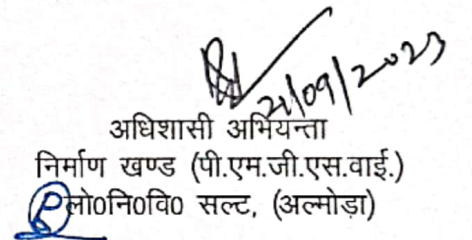 21/09/2023
अधिशासी अभियन्ता
निर्माण खण्ड (पी.एम.जी.एस.वाई.)
लो0नि0वि0 सल्ट, (अल्मोड़ा)